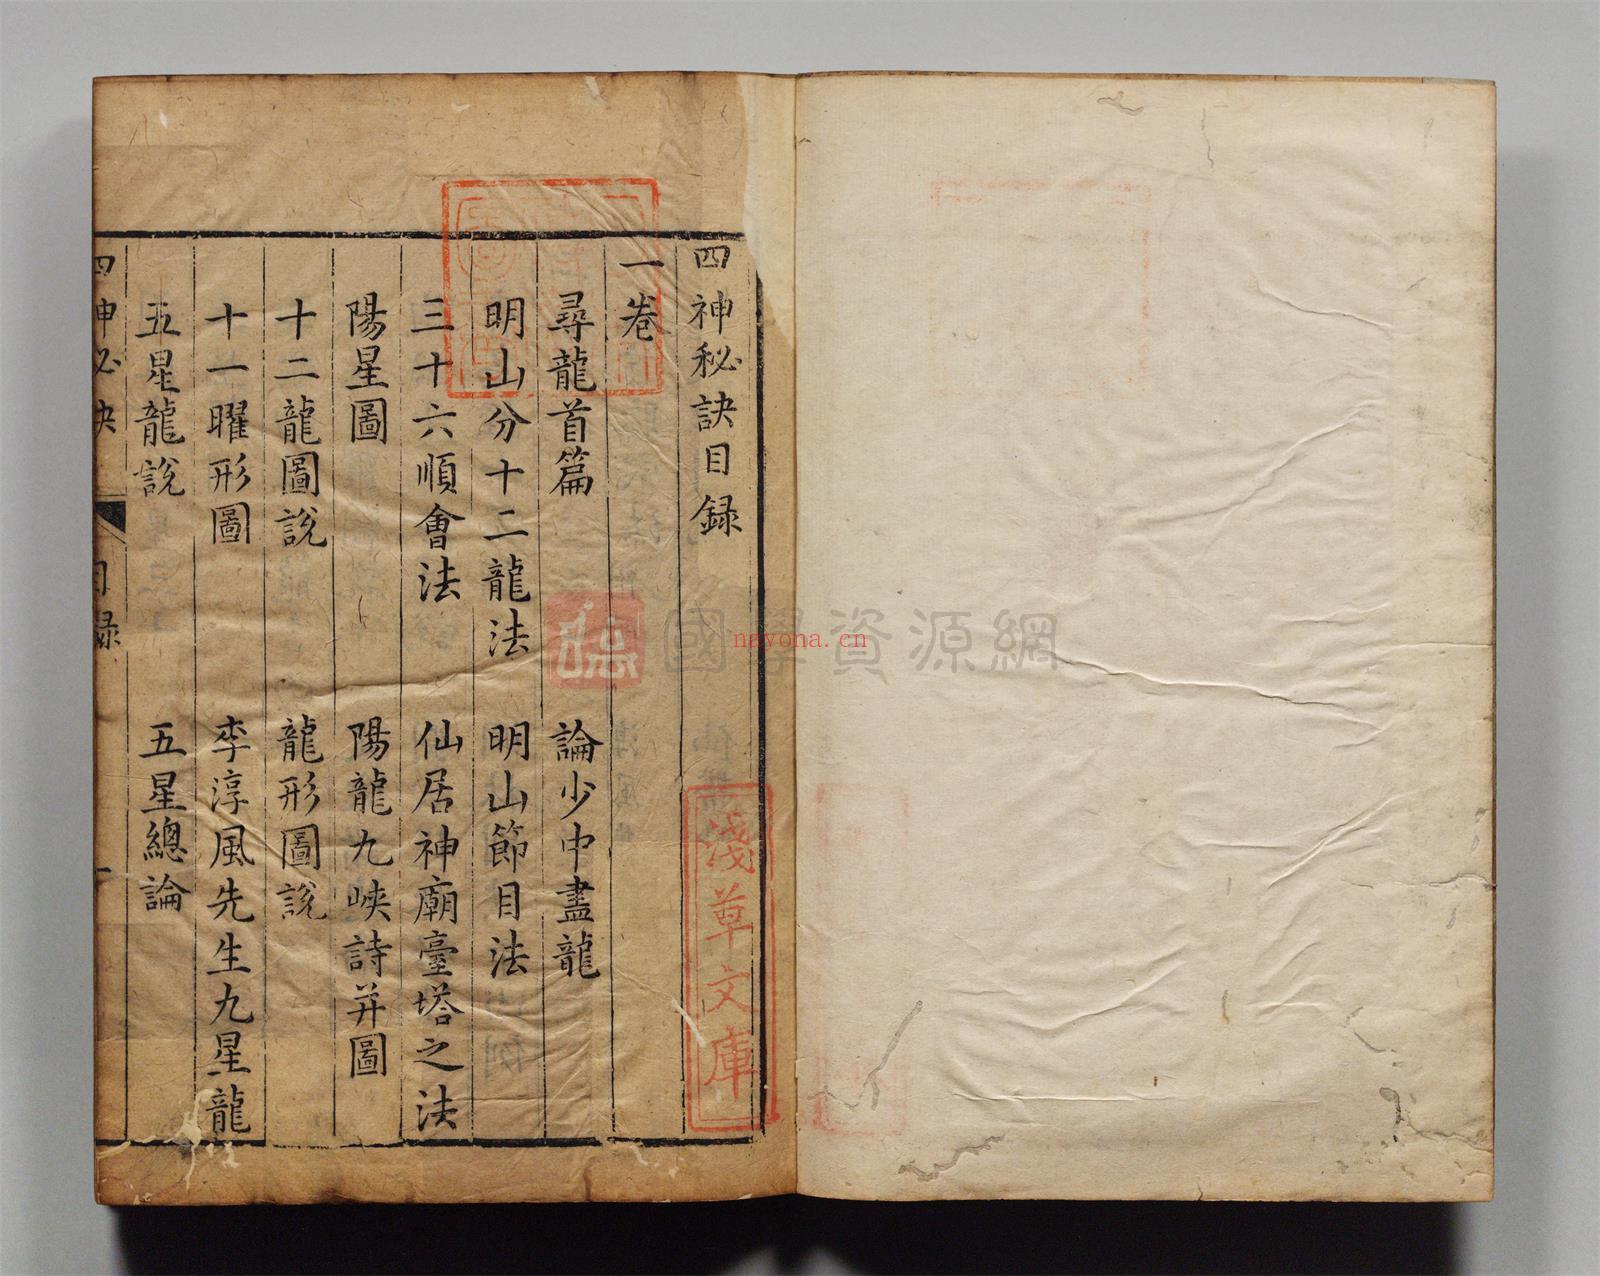 四神秘訣目録
一卷
尋龍首篇 論少中盡龍
明山分十二龍法 明山節目法
三十六順會法 仙居神廟臺塔之法
陽星圖 陽龍九峽詩并圖
十二龍圖說 龍形圖說
十一曜形圖 李淳風先生九星龍
五星龍說 五星總論
四神必決 目録 一
淺草文庫
國學資源網
nayona.cn